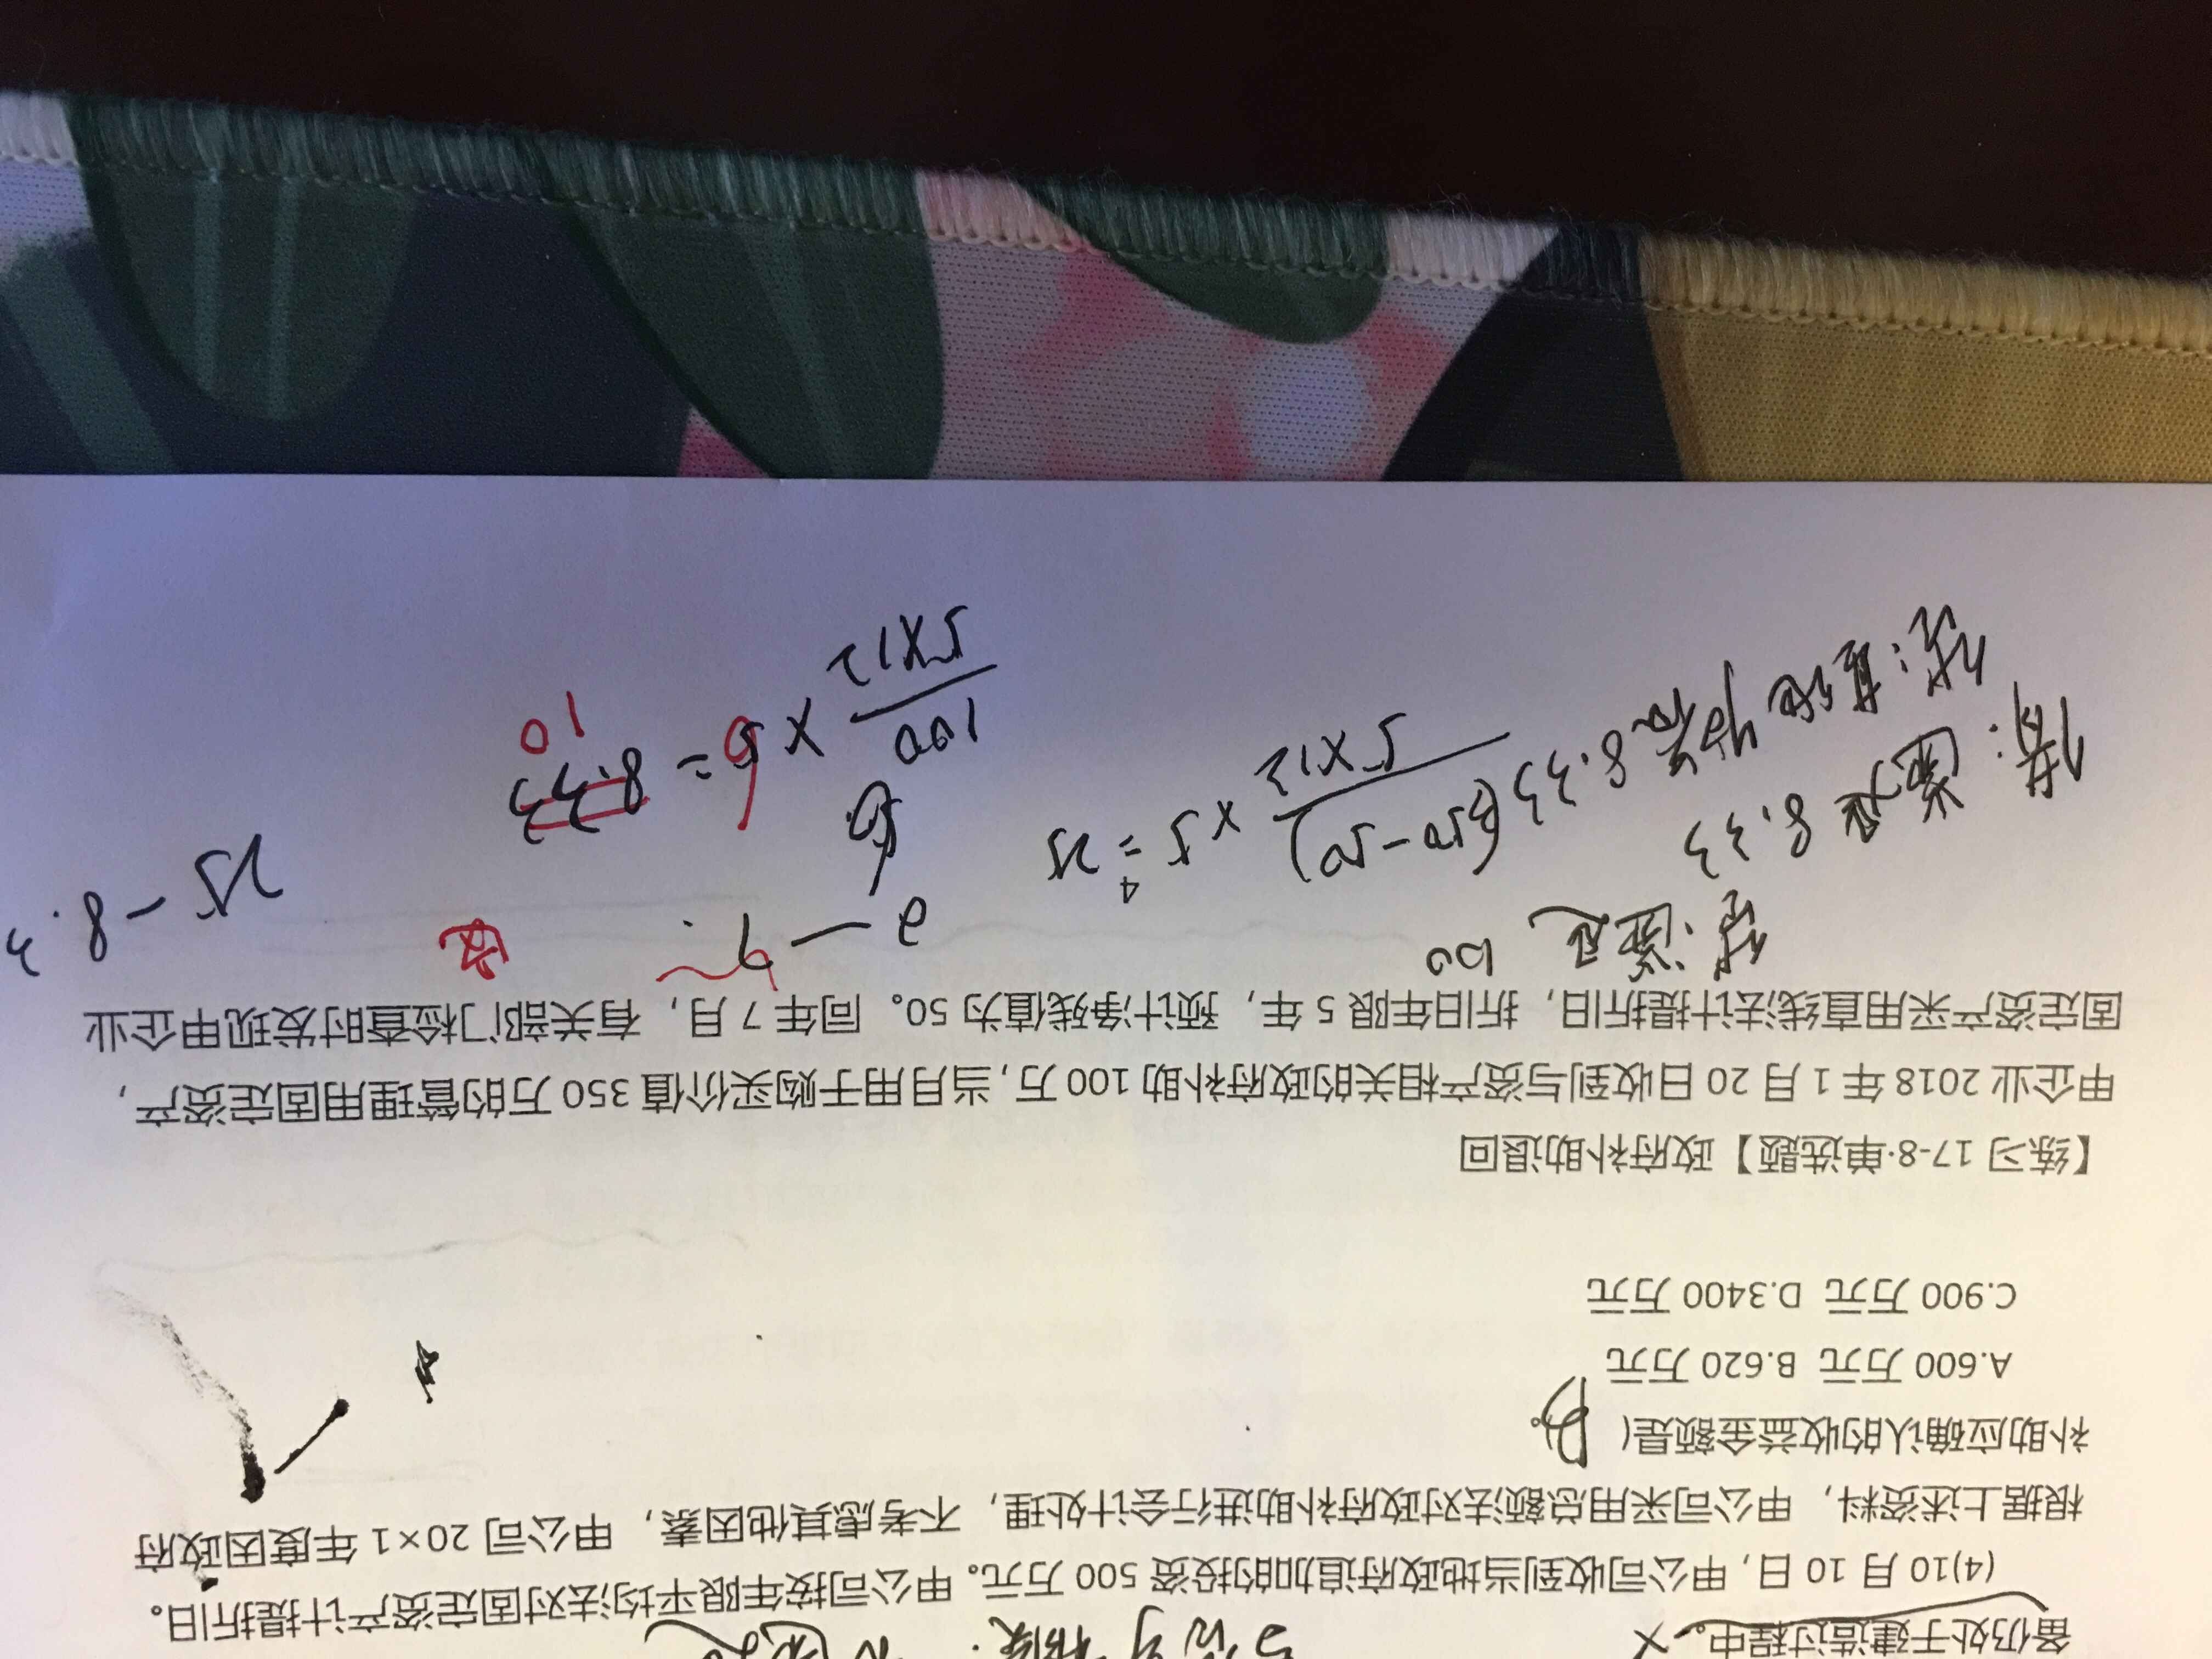 备仍处于建造过程中。 ×
(4)10 月 10 日, 甲公司收到当地政府追加的投资 500 万元。甲公司按年限平均法对固定资产计提折旧。
根据上述资料, 甲公司采用总额法对政府补助进行会计处理, 不考虑其他因素, 甲公司 20×1 年度因政府
补助应确认的收益金额是( B )。
A.600 万元 B.620 万元
C.900 万元 D.3400 万元
【练习 17-8·单选题】政府补助退回
甲企业 2018 年 1 月 20 日收到与资产相关的政府补助 100 万, 当月用于购买价值 350 万的管理用固定资产,
固定资产采用直线法计提折旧, 折旧年限 5 年, 预计净残值为 50。同年 7 月, 有关部门检查时发现甲企业
借:递延 100
2—7.
借:累计 8.33
(350-50)
5×12
×5=25
6
25-8.3
贷:其他收益 8.33
100
5×12
×6=8.33
10